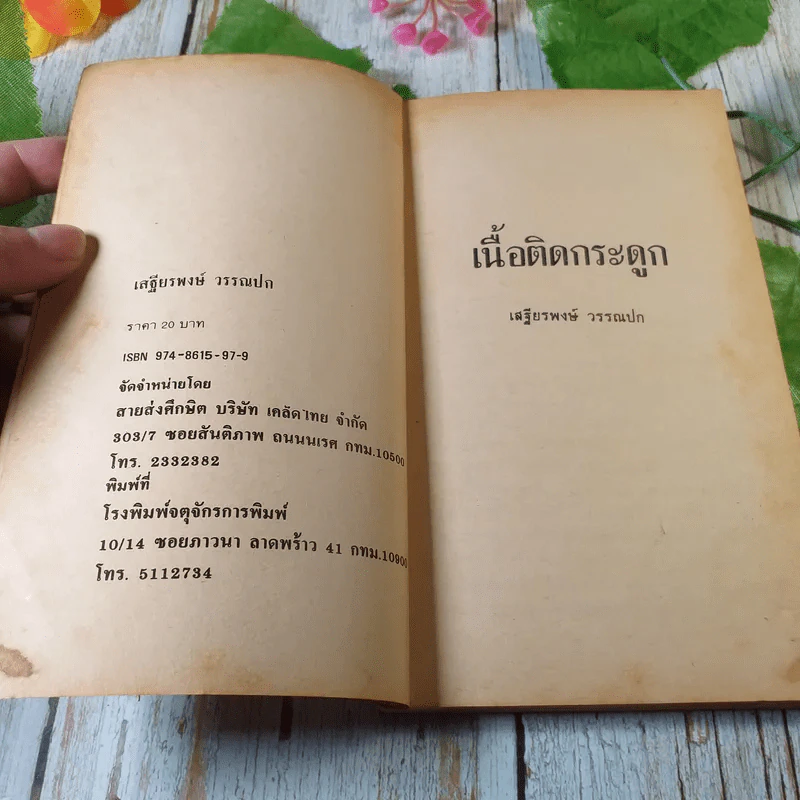 เสฐียรพงษ์ วรรณปก
ราคา 20 บาท
ISBN 974-8615-97-9
จัดจำหน่ายโดย
สายส่งศึกษิต บริษัท เคล็ดไทย จำกัด
303/7 ซอยสันติภาพ ถนนนเรศ กทม.10500
โทร. 2332382
พิมพ์ที่
โรงพิมพ์จตุจักรการพิมพ์
10/14 ซอยภาวนา ลาดพร้าว 41 กทม.10900
โทร. 5112734
เนื้อติดกระดูก
เสฐียรพงษ์ วรรณปก